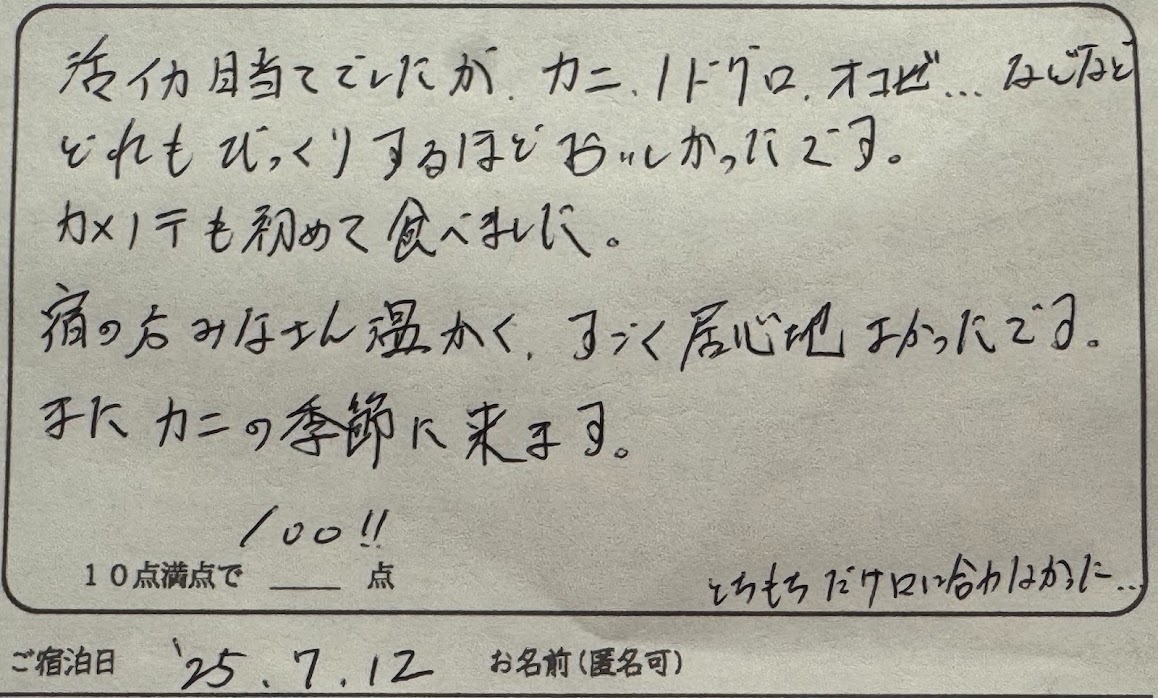 活イカ目当てでしたが、カニ、ノドグロ、オコゼ…などなど
どれもびっくりするほどおいしかったです。
カメノテも初めて食べました。
宿の方みなさん温かく、すごく居心地よかったです。
またカニの季節に来ます。
100!!
10点満点で ___ 点
とちもちだけ口に合わなかった…
ご宿泊日 '25.7.12 お名前(匿名可)